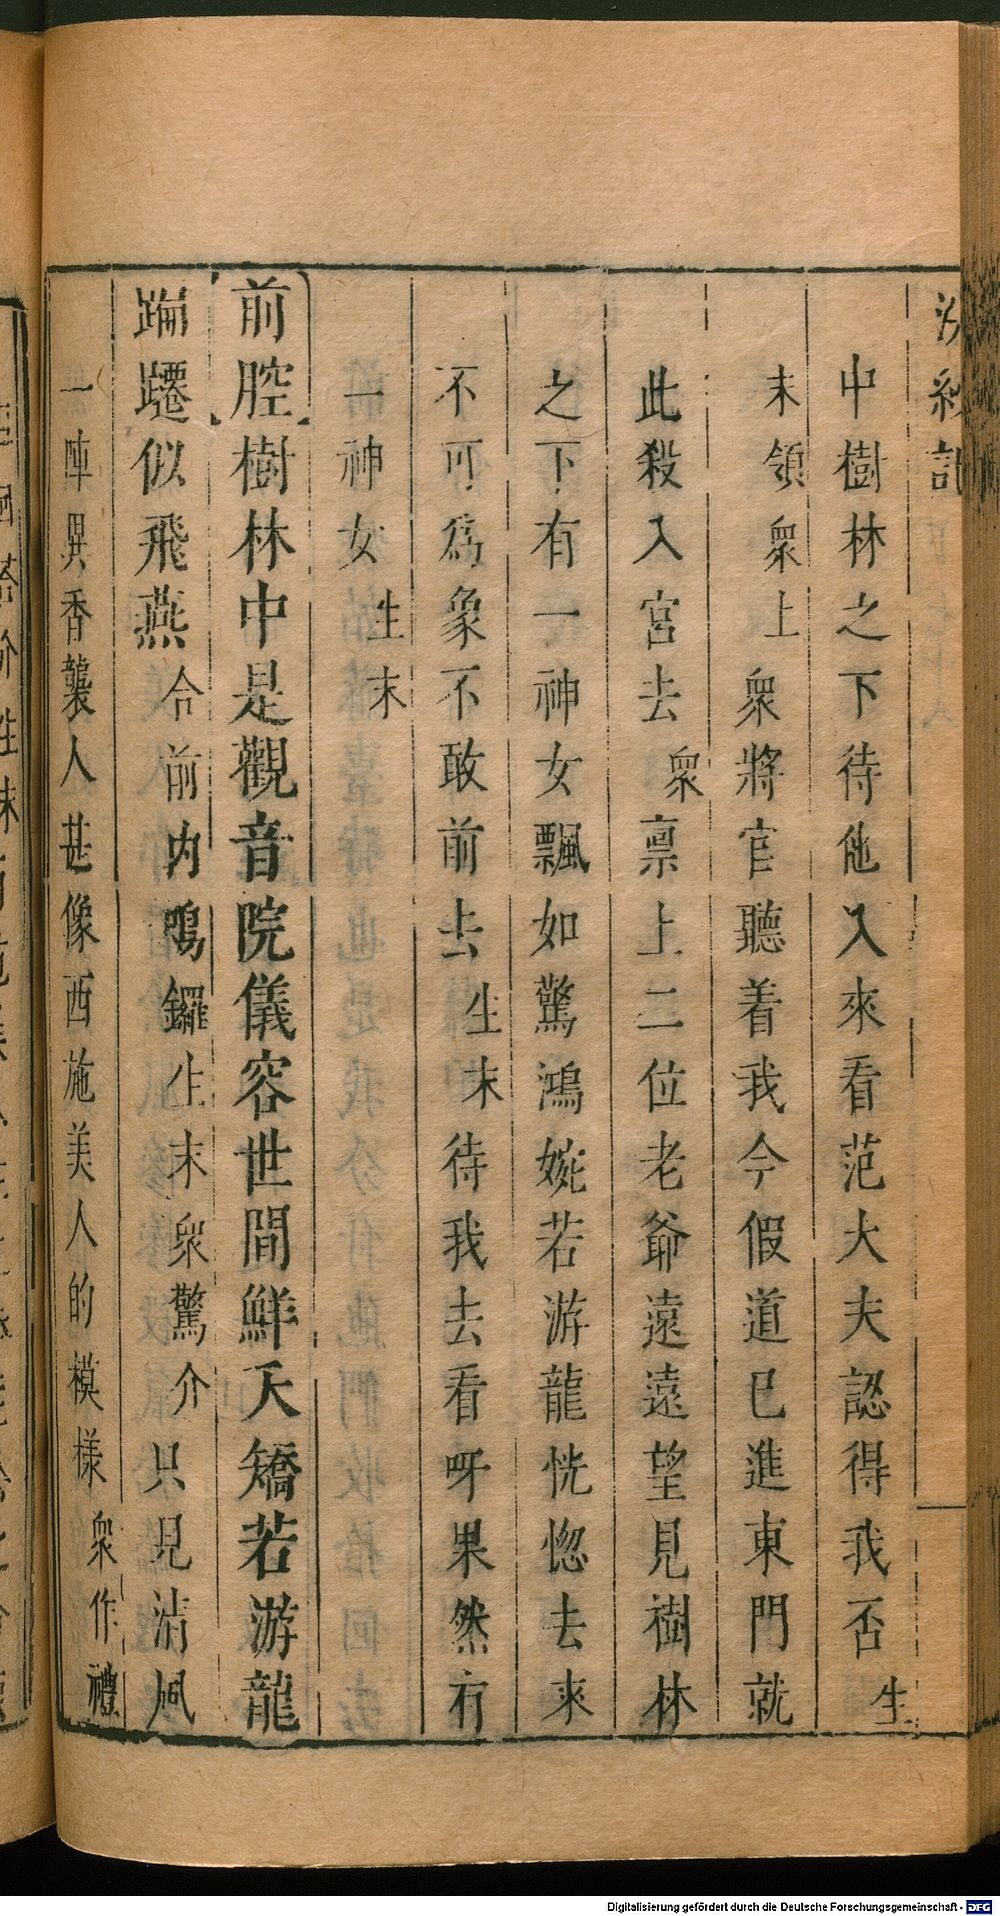 浣紗記
中樹林之下待他入來看范大夫認得我否生
末領衆上衆將官聽着我今假道已進東門就
此殺入宮去衆禀上二位老爺遠遠望見樹林
之下有一神女飄如驚鴻婉若游龍恍惚去來
不可爲象不敢前去生末待我去看呀果然有
一神女生末
前腔樹林中是觀音院儀容世間鮮夭矯若游龍
蹁躚似飛燕合前内鳴鑼生末衆驚介只見清風
一陣異香襲人甚像西施美人的模樣衆作禮
Digitalisierung gefördert durch die Deutsche Forschungsgemeinschaft - DFG